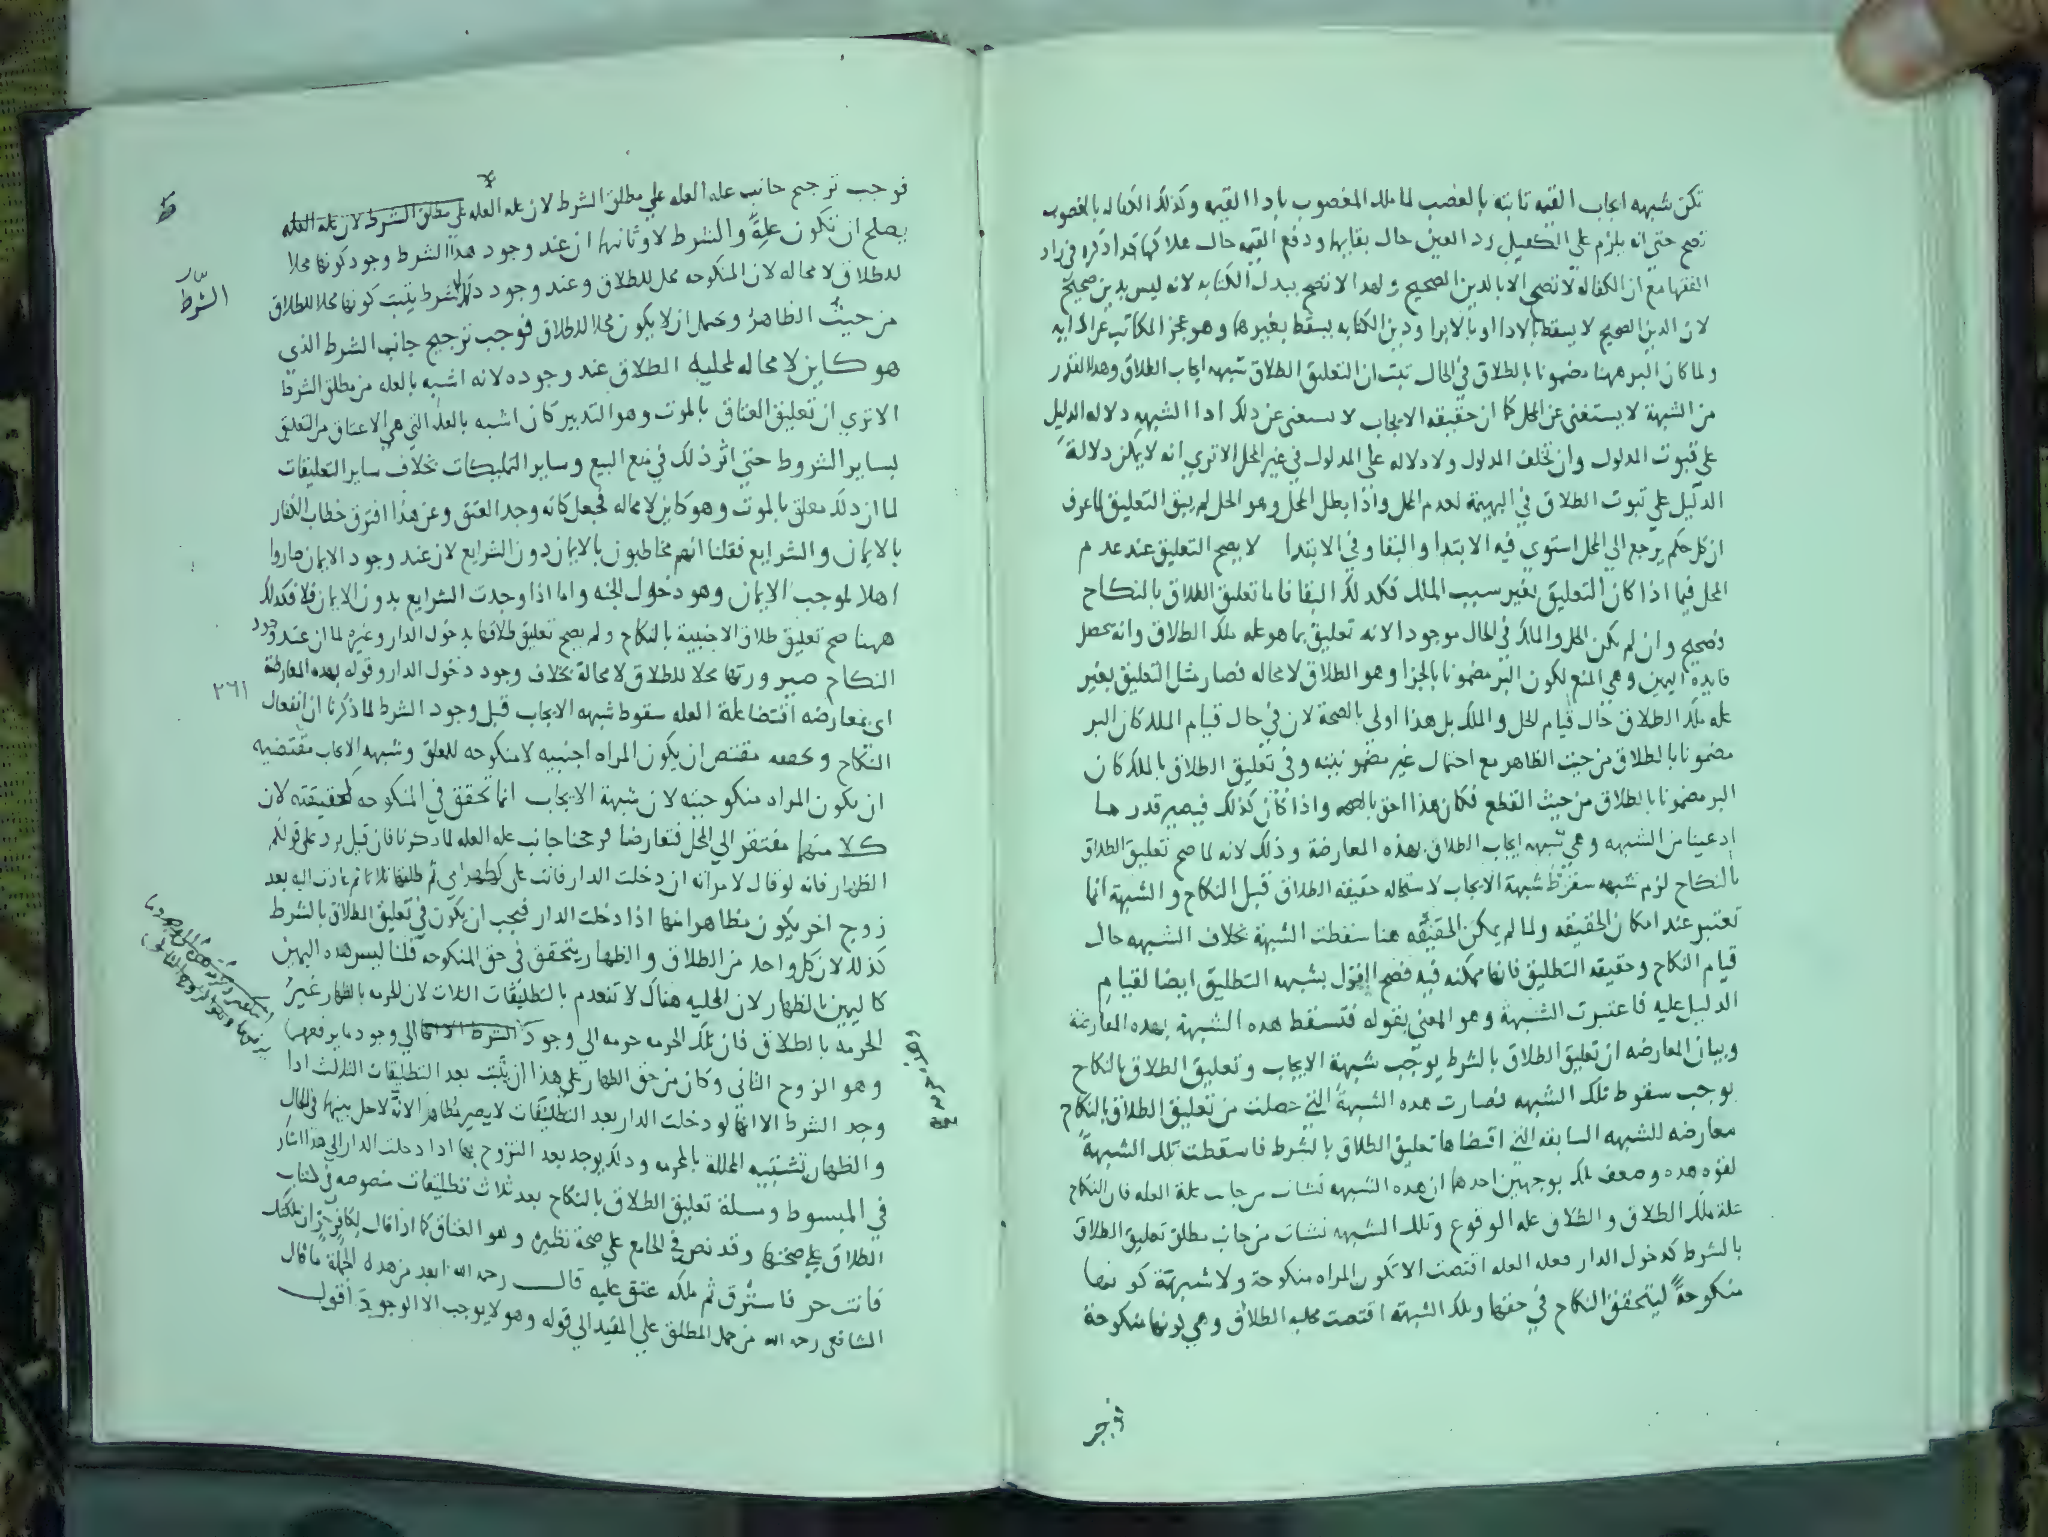 تكن شبهه ايجاب القيمه ثابتة بالغصب لما ملك المغصوب بادا القيمه وكذلك الكفاله بالمغصوب
تصح حتى انه يلزم على الكفيل رد العين حال بقايها ودفع القيمه حال هلاكها
الفقها مع ان الكفاله لا تصح الا بالدين الصحيح ولهذا لا تصح ببدل الكتابه لانه ليس بدين صحيح
لان الدين الصحيح لا يسقط الا بالادا او بالابرا ودين الكتابه يسقط بغيرهما وهو عجز المكاتب عن ادايه
ولما كان البر ههنا مضمونا بالطلاق في الحال ثبت ان لتعليق الطلاق شبهه ايجاب الطلاق وهذا القدر
من الشبهة لا يستغنى عن المحل كما ان حقيقه الايجاب لا يستغنى عن ذلك اذا الشبهه دلاله الدليل
على ثبوت المدلول وان تخلف المدلول ولا دلاله على المدلول في غير المحل الا ترى انه لا يمكن دلالة
الدليل على ثبوت الطلاق في البهيمة لعدم المحل واذا بطل المحل وهو الحل لم يبق التعليق لما عرف
ان كل حكم يرجع الى المحل استوى فيه الابتدا والبقا وفي الابتدا لا يصح التعليق عند عدم
المحل فيما اذا كان التعليق بغير سبب الملك فكذلك البقا فاما تعليق الطلاق بالنكاح
فصحيح وان لم يكن الحل والملك في الحال موجودا لانه تعليق بما هو عله ملك الطلاق وانه محصل
فايدة اليمين وهي المنع لكون البر مضمونا بالجزا وهو الطلاق لا محاله فصار مثل التعليق بغير
عله ملك الطلاق حال قيام الحل والملك بل هذا اولى بالصحة لان في حال قيام الملك كان البر
مضمونا بالطلاق من حيث الظاهر مع احتمال غير مضمونيته وفي تعليق الطلاق بالملك كان
البر مضمونا بالطلاق من حيث القطع فكان هذا احق بالصحه واذا كان كذلك فيصير قدر ما
ادعينا من الشبهه وهي شبهه ايجاب الطلاق بهذه المعارضة وذلك لانه لما صح تعليق الطلاق
بالنكاح لزم شبهه سقوط شبهة الايجاب لاستحاله حقيقه الطلاق قبل النكاح والشبهة انما
تعتبر عند امكان الحقيقه ولما لم يمكن الحقيقه هنا سقطت الشبهة بخلاف الشبهه حال
قيام النكاح وحقيقه التطليق فانها ممكنه فيه فصح القول بشبهه التطليق ايضا لقيام
الدليل عليه فاعتبرت الشبهة وهو المعني بقوله فتسقط هذه الشبهة بهذه المعارضة
وبيان المعارضه ان تعليق الطلاق بالشرط يوجب شبهة الايجاب وتعليق الطلاق بالنكاح
يوجب سقوط تلك الشبهه فصارت هذه الشبهة التي حصلت من تعليق الطلاق بالنكاح
معارضه للشبهه السابقه التي اقتضاها تعليق الطلاق بالشرط فاسقطت تلك الشبهة
لقوه هذه وضعف تلك بوجهين احدهما ان هذه الشبهه نشات من جانب علة العله فان النكاح
علة ملك الطلاق والطلاق عله الوقوع وتلك الشبهه نشات من جانب مطلق تعليق الطلاق
بالشرط كدخول الدار فعله العله اقتضت الا تكون المراه منكوحة ولا شبهة كونها
منكوحةً ليتحقق النكاح في حقها وتلك الشبهة اقتضت محليه الطلاق وهي كونها منكوحة
فوجب ترجيح جانب عله العله على مطلق الشرط لان عله العله على مطلق الشرط لان عله العله
يصلح ان تكون علةً والشرط لا وثانيها ان عند وجود هذا الشرط وجود كونها محلا
للطلاق لا محاله لان المنكوحه محل للطلاق وعند وجود ذلك الشرط يثبت كونها محلا للطلاق
من حيث الظاهر ويحتمل ان لا يكون محلا للطلاق فوجب ترجيح جانب الشرط الذي
هو كاين لا محاله لمحلية الطلاق عند وجوده لانه اشبه بالعله من مطلق الشرط
الا ترى ان تعليق العتاق بالموت وهو التدبير كان اشبه بالعله التي هي الاعتاق من التعليق
بساير الشروط حتى اثر ذلك في منع البيع وساير التمليكات بخلاف ساير التعليقات
لما ان ذلك معلق بالموت وهو كاين لا محاله فيجعل كانه وجد العتق وعن هذا افترق خطاب الكفار
بالايمان والشرايع فقلنا انهم مخاطبون بالايمان دون الشرايع لان عند وجود الايمان صاروا
اهلا لموجب الايمان وهو دخول الجنه واما اذا وجدت الشرايع بدون الايمان فلا فكذلك
ههنا صح تعليق طلاق الاجنبية بالنكاح ولم يصح تعليق طلاقها بدخول الدار وغيره لما ان عند وجود
النكاح صيرورتها محلا للطلاق لا محالة بخلاف وجود دخول الدار وقوله بهذه المعارضة
اي بمعارضه اقتضا علة العله سقوط شبهه الايجاب قبل وجود الشرط لما ذكرنا ان انفعال
النكاح وتحققه مقتض ان يكون المراه اجنبيه لا منكوحه للمعلق وشبهه الايجاب مقتضيه
ان يكون المراه منكوحيته لان شبهة الايجاب انما تحقق في المنكوحه كحقيقته لان
كلا منهما مفتقر الى المحل فتعارضا فرجحنا جانب عله العله لما ذكرنا فان قيل يرد على قولكم
الظهار فانه لو قال لامراته ان دخلت الدار فانت علي كظهر امي ثم طلقها ثلاثا ثم عادت اليه بعد
زوج اخر يكون مظاهرا منها اذا دخلت الدار فيجب ان يكون في تعليق الطلاق بالشرط
كذلك لان كل واحد من الطلاق والظهار يتحقق في حق المنكوحه قلنا ليس هذه اليمين
كاليمين بالظهار لان المحليه هناك لا تنعدم بالتطليقات الثلاث لان الحرمه بالظهار غير
الحرمه بالطلاق فان تلك الحرمه حرمه الى وجود الشرط الا انها الى وجود ما يرفعها
وهو الزوج الثاني وكان من حق الظهار على هذا ان يثبت بعد التطليقات الثلاث اذا
وجد الشرط الا انها لو دخلت الدار بعد التطليقات لا يصير مظاهرا لانه لا حل بينهما في الحال
والظهار تشبيه المحللة بالمحرمه وذلك يوجد بعد التزوج بها اذا دخلت الدار الى هذا اشار
في المبسوط ومسلة تعليق الطلاق بالنكاح بعد ثلاث تطليقات منصوصه في كتاب
الطلاق على صحتها وقد نص في الجامع على صحة نظيره وهو العتاق كما اذا قال لكافر ان ملكتك
فانت حر فاسترق ثم ملكه عتق عليه قال رحمه الله ابعد من هذه الجملة ما قال
الشافعي رحمه الله من حمل المطلق على المقيد الى قوله وهو لا يوجب الا الوجود اقول
الشرط
٢٦١